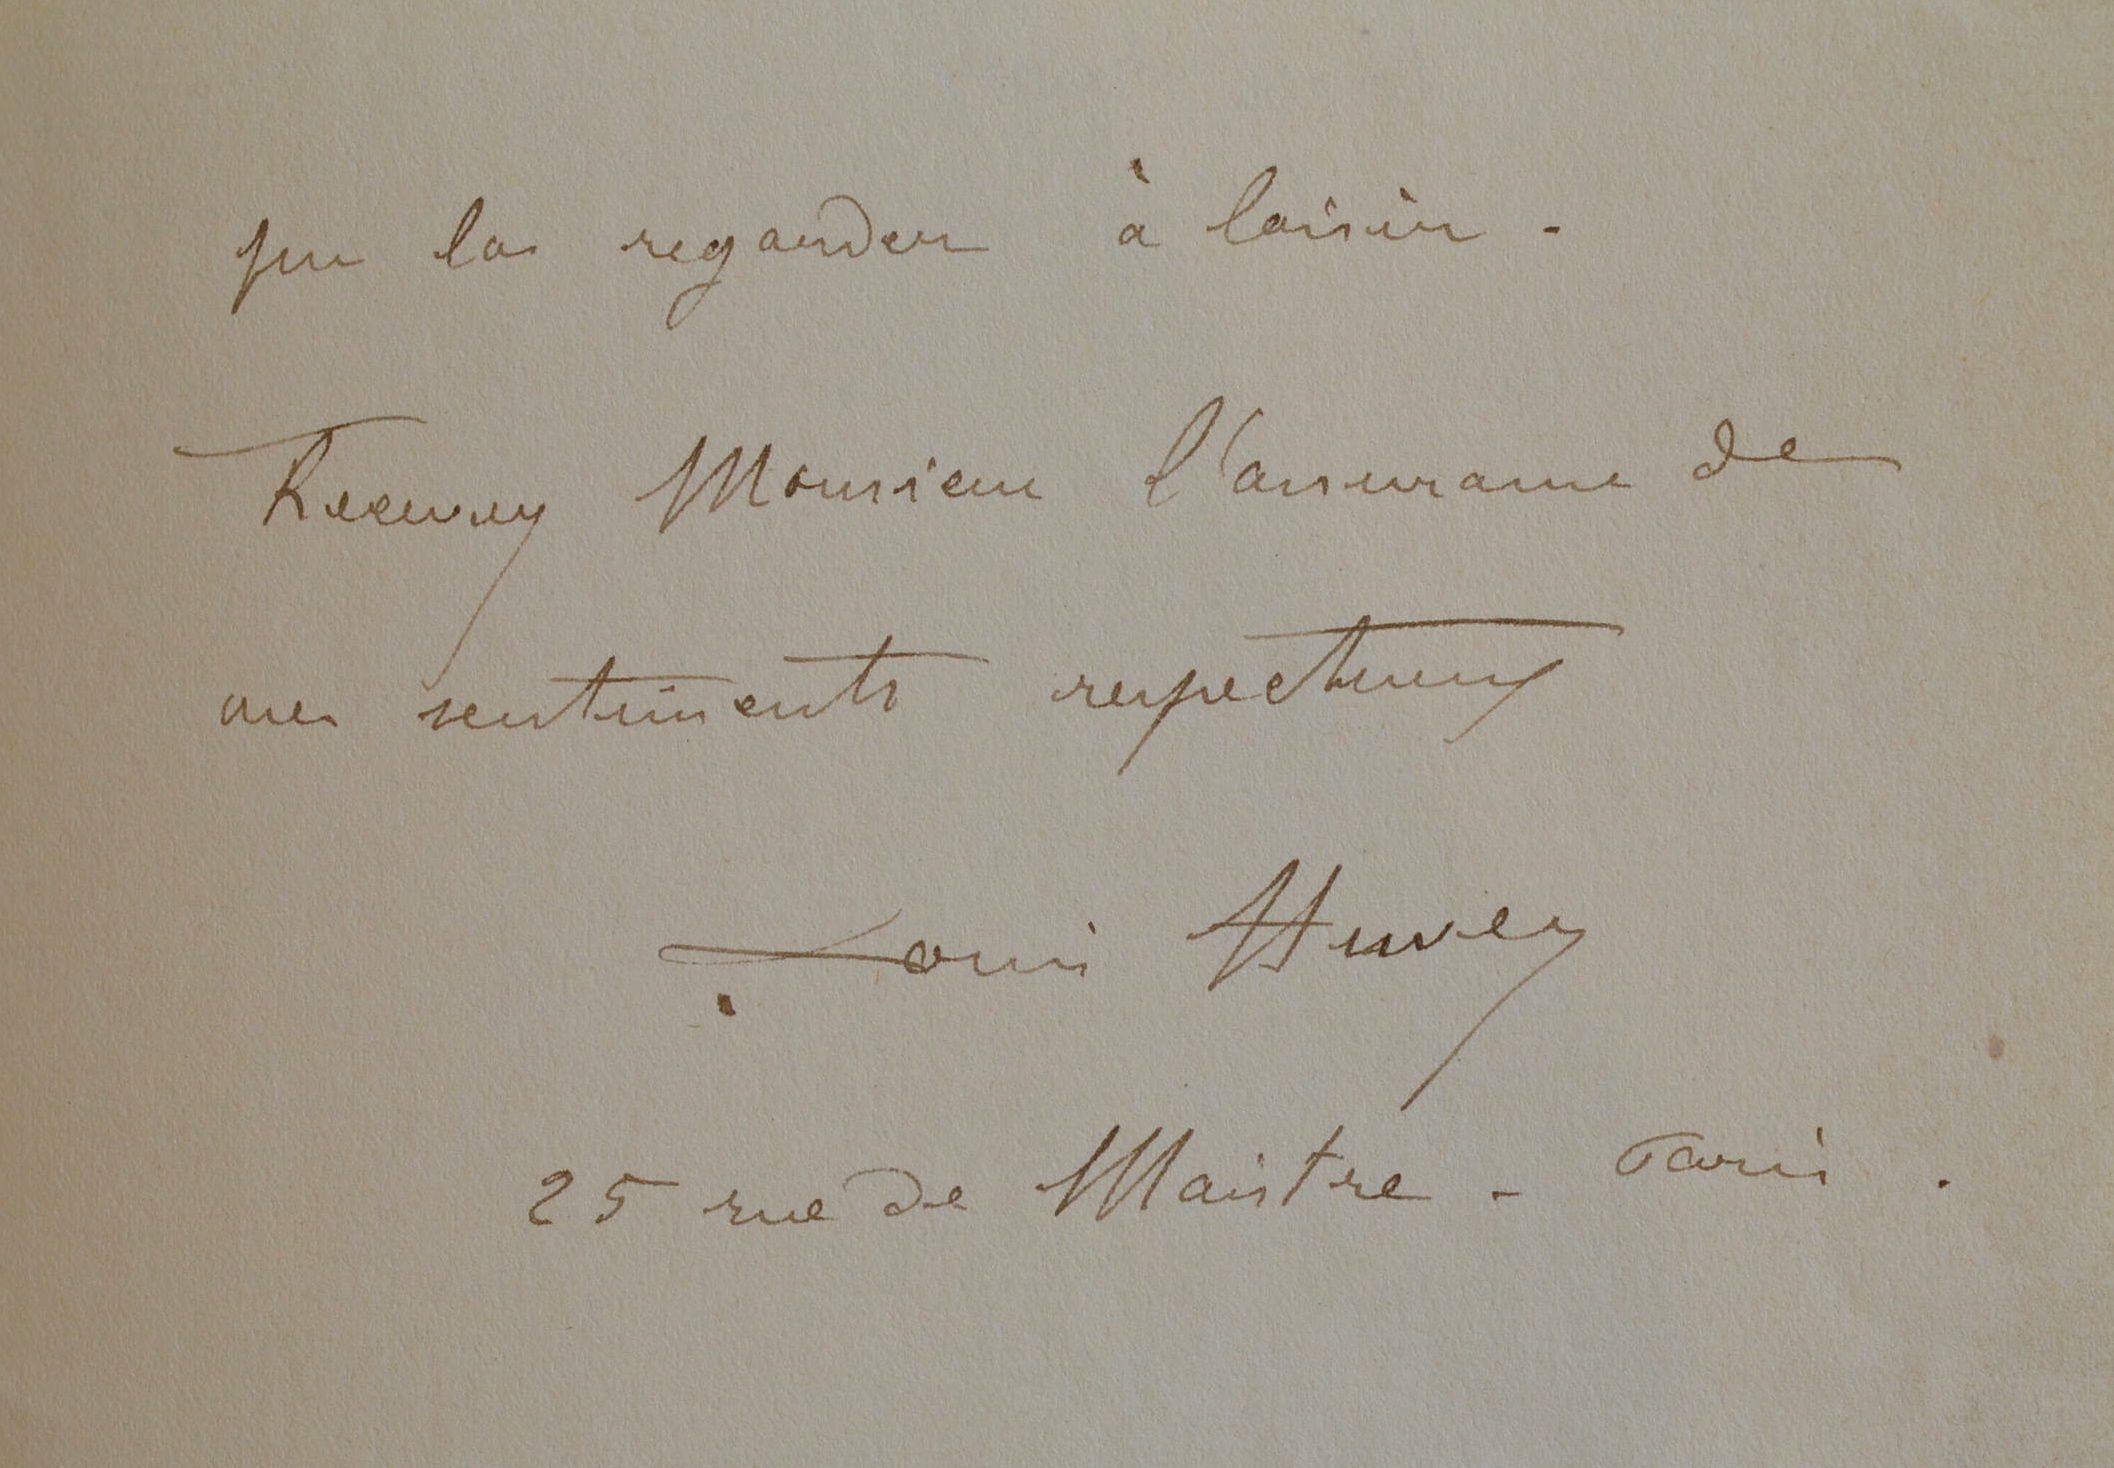 pu la regarder à loisir.
Recevez Monsieur l'assurance de
mes sentiments respectueux
Louis Huvey
25 rue de Maistre - Paris.